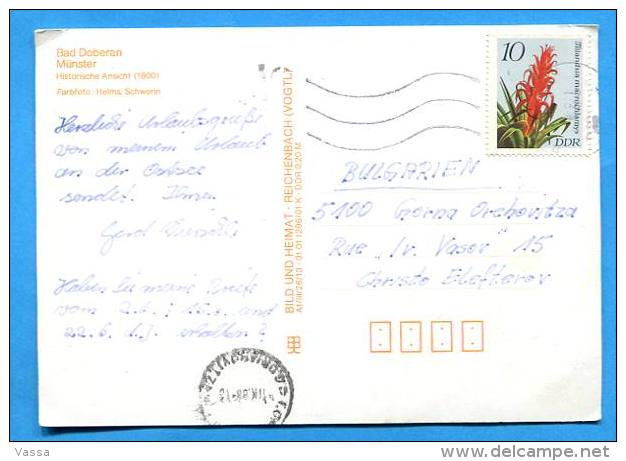 Bad Doberan
Münster
Historische Ansicht (1800)
Farbfoto: Helms, Schwerin
Herzliche Urlaubsgrüße
von meinem Urlaub
an der Ostsee
sendet Ihnen
Gerd
Haben Sie meine Briefe
vom 2.6., 15.6. und
22.6. d.J. erhalten?
BILD UND HEIMAT · REICHENBACH (VOGTL)
A1/III/26/13 · 01 01 1296/01 K · DDR 0,20 M
10
Tillandsia macrochlamys
DDR
BULGARIEN
5100 Gorna Orchovitza
Rue "Iv. Vasov" 15
Christo Elefterov
Vassa
www.delcampe.net